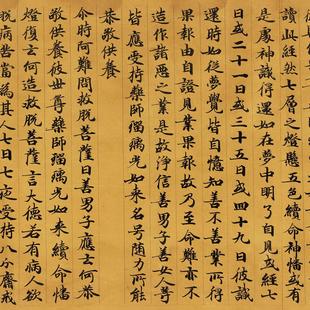 讀此經然七層之燈懸五色續命神幡或有
是處神識得還如在夢中明了自見或經七
日或二十一日或三十五日或四十九日彼識
還時如從夢覺皆自憶知善不善業所得
果報由自證見業果報故乃至命難亦不
造作諸惡之業是故淨信善男子善女人等
皆應受持藥師瑠璃光如來名号隨力所能
恭敬供養
尒時阿難問救脫菩薩曰善男子應云何恭
敬供養彼世尊藥師瑠璃光如來續命幡
燈復云何造救脫菩薩言大德若有病人欲
脫病苦當為其人七日七夜受持八分齋戒